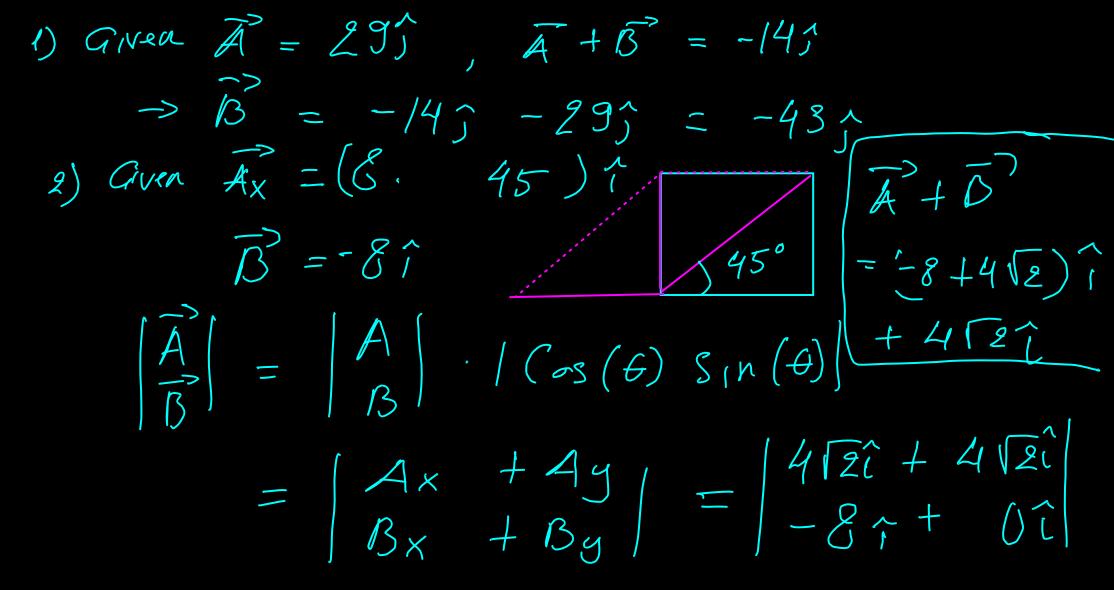 1) Given A⃗ = 29ĵ , A⃗ + B⃗ = -14ĵ
→ B⃗ = -14ĵ - 29ĵ = -43ĵ
2) Given A⃗x = (8. 45 ) î
B⃗ = -8î
45°
A⃗ + B⃗
= (-8 + 4√2) î
+ 4√2 î
|A⃗ B⃗| = |A B| · |Cos(θ) sin(θ)|
= |Ax + Ay Bx + By| = |4√2î + 4√2î -8î + 0î|